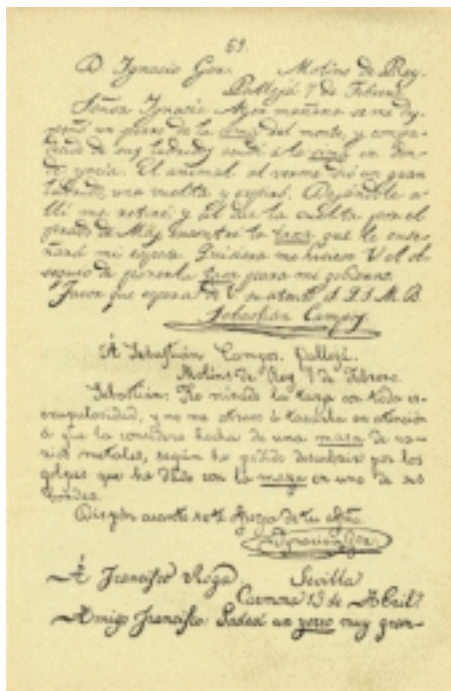 69.
D. Ignacio Goz. Molins de Rey.
Pallejá 7 de Febrero
Señor Ignacio: Ayer mañana se me des-
peñó un perro de la cima del monte, y compa-
decido de sus ladridos acudí á la sima en don-
de yacía. El animal al verme dió un gran
ladrido, una vuelta y expiró. Dejándole a-
llí me retiré y al dar la vuelta por el
prado de May encontré la taza que le ense-
ñará mi esposa. Quisiera me hiciera V. el ob-
sequio de ponerla tasa para mi gobierno.
Favor que espera de V. su atento S. S. S. M. B.
Sebastián Campoy
Á Sebastián Campoy. Pallejá.
Molins de Rey 9 de Febrero.
Sebastián: He mirado la taza con toda es-
crupulosidad, y no me atrevo á tasarla en atención
á que la considero hecha de una masa de va-
rios metales, según he podido descubrir por los
golpes que he dado con la maza en uno de sus
bordes.
Dispón cuanto de tu afmo.
Ignacio Goz.
Á Francisco Sevilla
Carmona 13 de Abril
Amigo Francisco: Padecí un yerro muy gran-